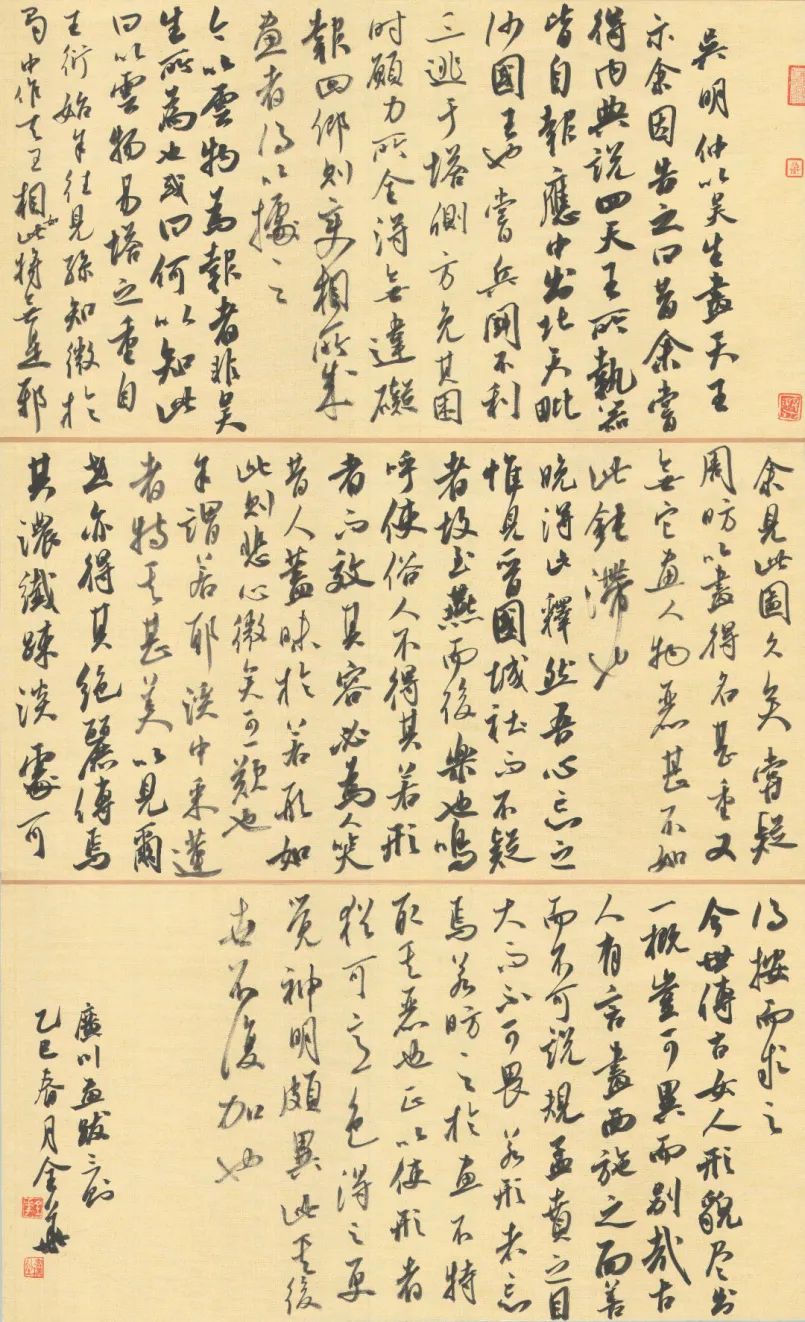 吳明仲以吳生畫天王
示余因告之曰昔余嘗
得內典說四天王所執器
皆自報應中出北天毗
沙國王也嘗兵鬭不利
三逃于塔側方免其困
時願力所全得無違礙
報回鄉則變相所成
畫者得以據之
今以雲物為報者非吳
生所為也或曰何以知此
曰以雲物易塔之重自
王衍始予往見孫知微於
蜀中作天王相如此將無是邪
余見此圖久矣嘗疑
周昉以畫得名甚重又
無它畫人物惡甚不如
此鈍滯也
晚得此釋然吾心忘之
惟見晉國城社而不疑
者故至燕而後樂也嗚
呼使俗人不得其若形
者而效其容必為人笑
昔人蓋昧於若形如
此則悲心微矣可歎也
予謂若耶溪中采蓮
者特其甚美以見爾
然亦得其絕麗傳焉
其濃纖疎淡處可
得按而求之
今世傳古女人形貌盡出
一概豈可異而別哉古
人有言畫西施之面善
而不可說規孟賁之目
大而不可畏若形者忘
焉若昉之於畫不特
取其惡也正以使形者
猶可意色得之更
覺神明頗異此其後
世不復加也
廣川畫跋三則
乙巳春月全華